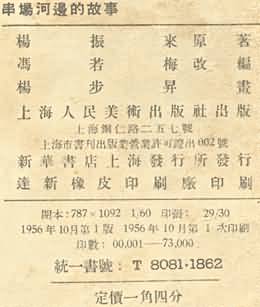 串場河邊的故事
楊振來原著
馮若梅改編
楊步昇畫
上海人民美術出版社出版
上海銅仁路二五七號
上海市書刊出版業營業許可證出002號
新華書店上海發行所發行
達新橡皮印刷廠印刷
開本:787×1092 1/60 印張: 29/30
1956年10月第1版 1956年10月第1次印刷
印數: 00,001—73,000
統一書號: T 8081·1862
定價一角四分